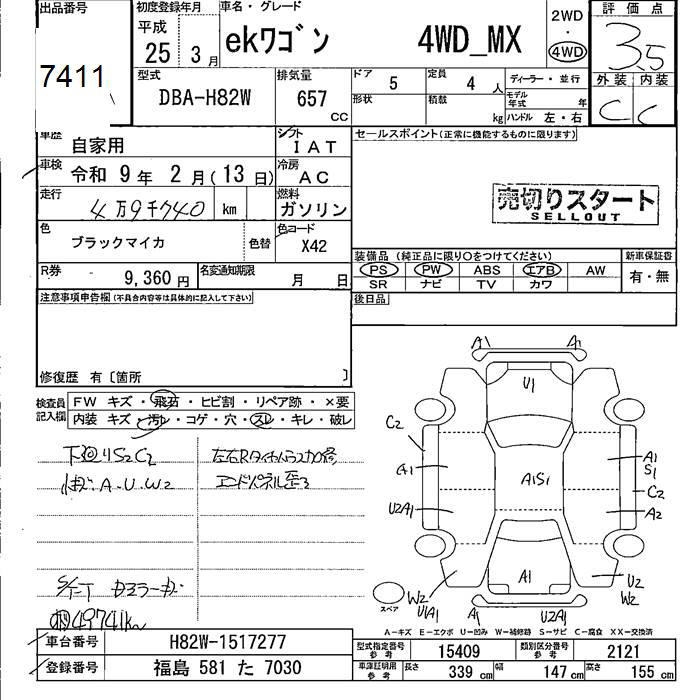 出品番号
7411
初度登録年月
平成
25 3月
車名・グレード
ekワゴン 4WD_MX
2WD
・
4WD
評価点
3.5
外装 内装
C C
型式
DBA-H82W
排気量
657
CC
ドア
5
定員
4 人
形状
積載
kg
ディーラー・並行
モデル年式 年
ハンドル 左・右
車歴
自家用
シフト
IAT
車検
令和 9年 2月(13日)
冷房
AC
走行
4万9千740 km
燃料
ガソリン
色
ブラックマイカ
色替
色コード
X42
R券
9,360円
名変通知期限
月 日
セールスポイント(正常に機能するものに限ります)
売切りスタート
SELLOUT
装備品 (純正品に限り○をつけてください)
PS PW ABS エアB AW
SR ナビ TV カワ
新車保証書
有・無
後日品
注意事項申告欄(不具合内容等は具体的に記入して下さい)
修復歴 有〔箇所 〕
検査員記入欄
FW キズ・飛石・ヒビ割・リペア跡・×要
内装 キズ・汚れ・コゲ・穴・スレ・キレ・破レ
下廻りS2C2
A.U.W2
エンドパネル歪ミ
49741km
A1 A1
U1
C2
A1
S1
C2
A1S1
U2A1
A2
A1
W2
U1A1
A1
U2A1
U2
W2
スペア
A−キズ E−エクボ U−凹み W−補修跡 S−サビ C−腐食 XX−交換済
車台番号
H82W-1517277
登録番号
福島 581 た 7030
型式指定番号
参考
15409
類別区分番号
参考
2121
車庫証明用
参考
長さ
339 cm
幅
147 cm
高さ
155 cm